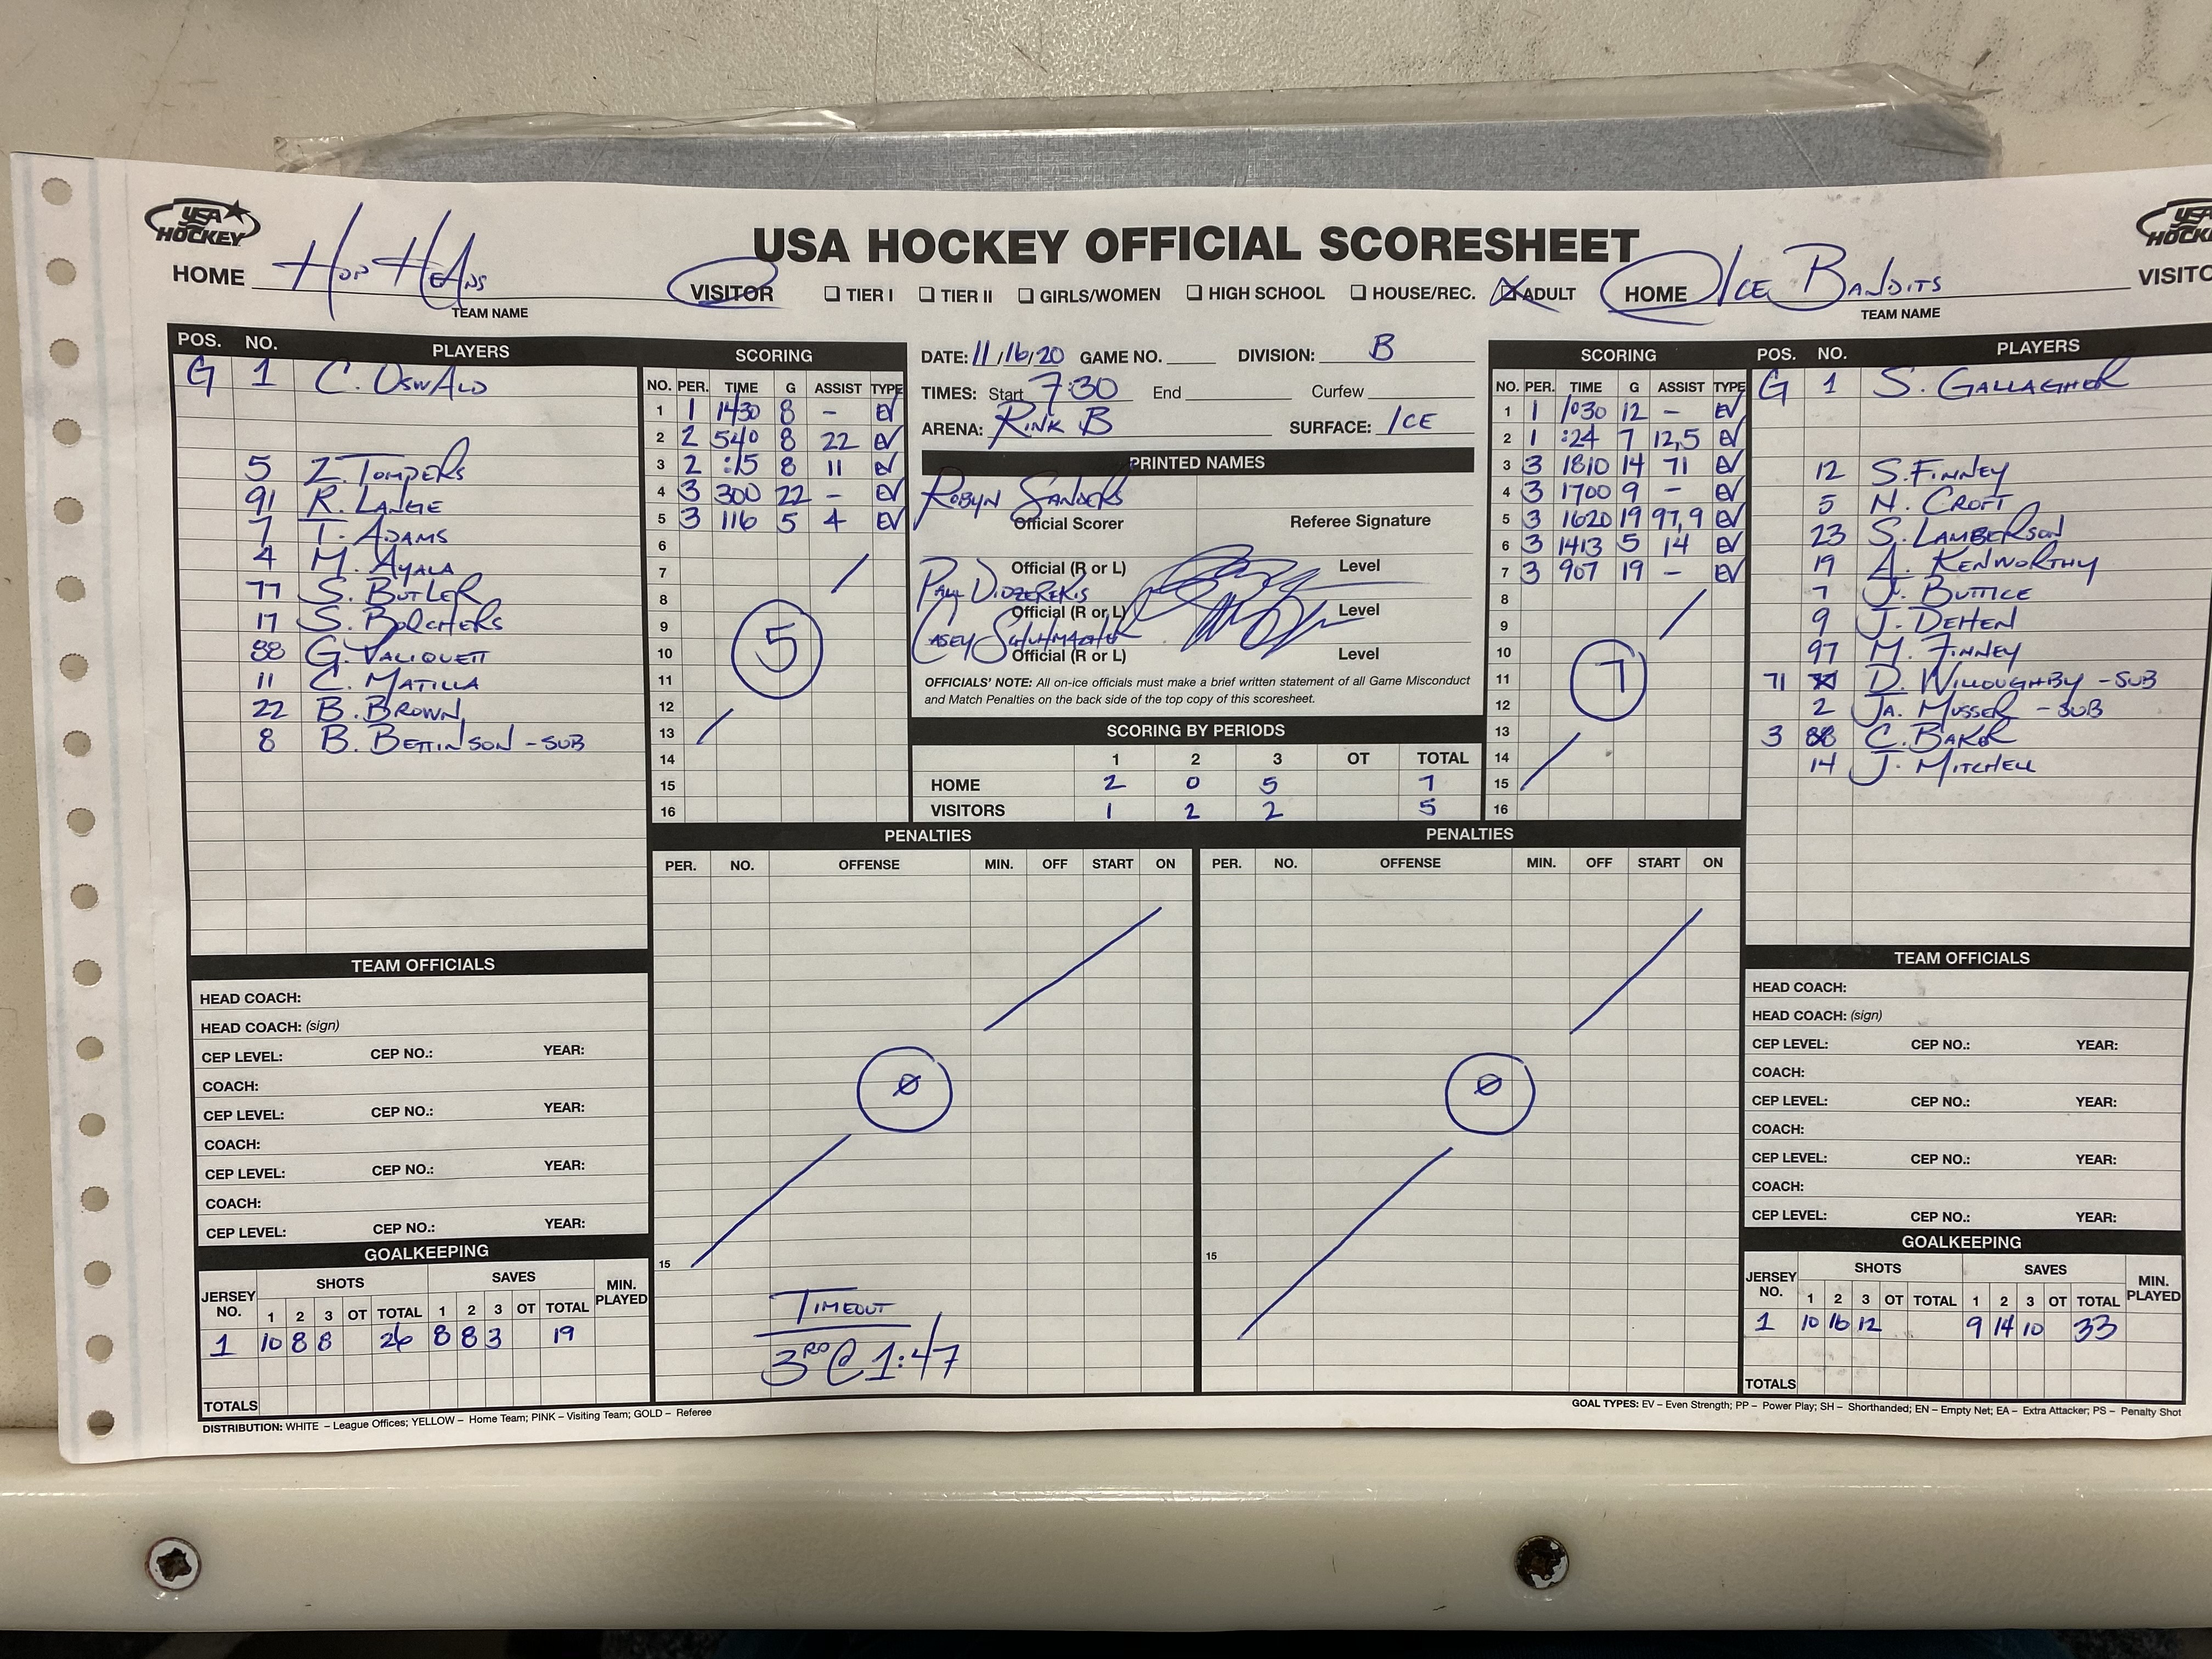 USA HOCKEY
USA HOCKEY OFFICIAL SCORESHEET
USA HOCKEY
HOME Hop Heads VISITOR ☐ TIER I ☐ TIER II ☐ GIRLS/WOMEN ☐ HIGH SCHOOL ☐ HOUSE/REC. ☒ ADULT HOME Ice Bandits VISITO
TEAM NAME
TEAM NAME
POS. NO. PLAYERS
G 1 C. Oswald
5 Z. Tompers
91 R. Lange
7 T. Adams
4 M. Ayala
77 S. Butler
17 S. Borchers
88 G. Valiquett
11 C. Matilla
22 B. Brown
8 B. Bettinson - SUB
SCORING
NO. PER. TIME G ASSIST TYPE
1 1 1430 8 - EV
2 2 540 8 22 EV
3 2 :15 8 11 EV
4 3 300 22 - EV
5 3 116 5 4 EV
6
7
8
9
10
11
12
13
14
15
16
5
DATE: 11/16/20 GAME NO. DIVISION: B
TIMES: Start 7:30 End Curfew
ARENA: Rink B SURFACE: Ice
PRINTED NAMES
Robyn Sanders
Official Scorer Referee Signature
Official (R or L) Level
Paul Didzerekis
Official (R or L) Level
Casey Schuhmacher
Official (R or L) Level
OFFICIALS' NOTE: All on-ice officials must make a brief written statement of all Game Misconduct
and Match Penalties on the back side of the top copy of this scoresheet.
SCORING BY PERIODS
1 2 3 OT TOTAL
HOME 2 0 5 7
VISITORS 1 2 2 5
SCORING
NO. PER. TIME G ASSIST TYPE
1 1 1030 12 - EV
2 1 :24 7 12,5 EV
3 3 1810 14 71 EV
4 3 1700 9 - EV
5 3 1620 19 97,9 EV
6 3 1413 5 14 EV
7 3 907 19 - EV
8
9
10
11
12
13
14
15
16
7
POS. NO. PLAYERS
G 1 S. Gallagher
12 S. Finney
5 N. Croft
23 S. Lamberson
19 A. Kenworthy
7 J. Buttice
9 J. Dehen
97 M. Finney
71 D. Willoughby - SUB
2 Ja. Musser - SUB
3 88 C. Baker
14 J. Mitchell
PENALTIES
PER. NO. OFFENSE MIN. OFF START ON
Ø
15
Timeout
3RD @ 1:47
PENALTIES
PER. NO. OFFENSE MIN. OFF START ON
Ø
15
TEAM OFFICIALS
HEAD COACH:
HEAD COACH: (sign)
CEP LEVEL: CEP NO.: YEAR:
COACH:
CEP LEVEL: CEP NO.: YEAR:
COACH:
CEP LEVEL: CEP NO.: YEAR:
COACH:
CEP LEVEL: CEP NO.: YEAR:
GOALKEEPING
JERSEY NO. SHOTS SAVES MIN. PLAYED
1 2 3 OT TOTAL 1 2 3 OT TOTAL
1 10 8 8 26 8 8 3 19
TOTALS
TEAM OFFICIALS
HEAD COACH:
HEAD COACH: (sign)
CEP LEVEL: CEP NO.: YEAR:
COACH:
CEP LEVEL: CEP NO.: YEAR:
COACH:
CEP LEVEL: CEP NO.: YEAR:
COACH:
CEP LEVEL: CEP NO.: YEAR:
GOALKEEPING
JERSEY NO. SHOTS SAVES MIN. PLAYED
1 2 3 OT TOTAL 1 2 3 OT TOTAL
1 10 16 12 9 14 10 33
TOTALS
DISTRIBUTION: WHITE – League Offices; YELLOW – Home Team; PINK – Visiting Team; GOLD – Referee
GOAL TYPES: EV – Even Strength; PP – Power Play; SH – Shorthanded; EN – Empty Net; EA – Extra Attacker; PS – Penalty Shot